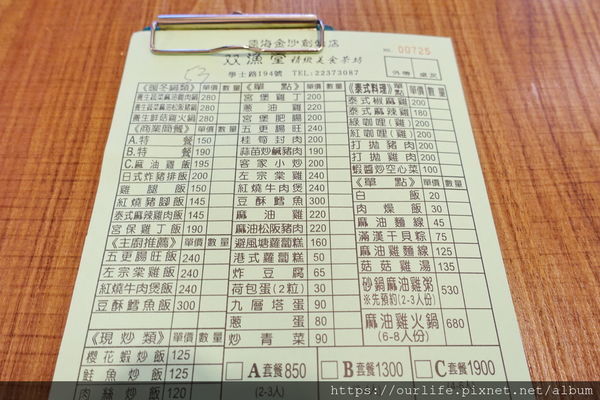 雲海金沙創始店
双漁堂 精緻美食茶坊
學士路194號 TEL:22373087
NO. 00725
外帶 桌次
《暖冬鍋類》 單價 數量
養生蔬菜麻油雞肉鍋 280
養生蔬菜麻油松阪豬鍋 280
養生鮮菇雞火鍋 280
《商業簡餐》 單價 數量
A.特餐 150
B.特餐 190
C.麻油雞飯 195
日式炸豬排飯 200
雞腿飯 150
紅燒豬腳飯 145
泰式麻辣雞肉飯 145
宮保雞丁飯 145
《主廚推薦》 單價 數量
五更腸旺飯 240
左宗棠雞飯 240
紅燒牛肉煲飯 240
豆酥鱈魚飯 300
《現炒類》 單價 數量
櫻花蝦炒飯 125
鮭魚炒飯 125
肉絲炒飯 120
《單點》 單價 數量
宮保雞丁 200
蔥油雞 220
宮保肥腸 200
五更腸旺 240
桂筍封肉 200
蒜苗炒鹹豬肉 200
客家小炒 200
左宗棠雞 240
紅燒牛肉煲 240
豆酥鱈魚 300
麻油雞 220
麻油松阪豬肉 220
避風塘蘿蔔糕 160
港式蘿蔔糕 50
炸豆腐 65
荷包蛋(2粒) 30
九層塔蛋 90
蔥蛋 80
炒青菜 90
《泰式料理》 單價 數量
泰式椒麻雞 200
泰式麻辣雞 180
綠咖哩(雞) 200
紅咖哩(雞) 200
打拋豬肉 200
打拋雞肉 200
蝦醬炒空心菜 100
《單點》 單價 數量
白飯 20
肉燥飯 30
麻油麵線 45
滿漢干貝粽 75
麻油雞麵線 125
菇菇雞湯 135
砂鍋麻油雞粥 530
※先預約(2-3人份)
麻油雞火鍋 680
(6-8人份)
A套餐850 B套餐1300 C套餐1900
(2-3人)
https://ourlife.pixnet.net/album